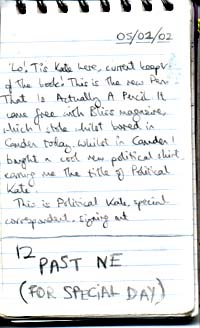 05/02/02
'Lo'. Tis Kate here, current keeper
of the book. This is the new Pen
That Is Actually A Pencil. It
came free with Bliss magazine,
which I stole whilst bored in
Camden today. Whilst in Camden I
bought a cool new political shirt,
earning me the title of Political
Kate.
This is Political Kate, special
correspondent, signing out
12
PAST NE
(FOR SPECIAL DAY)